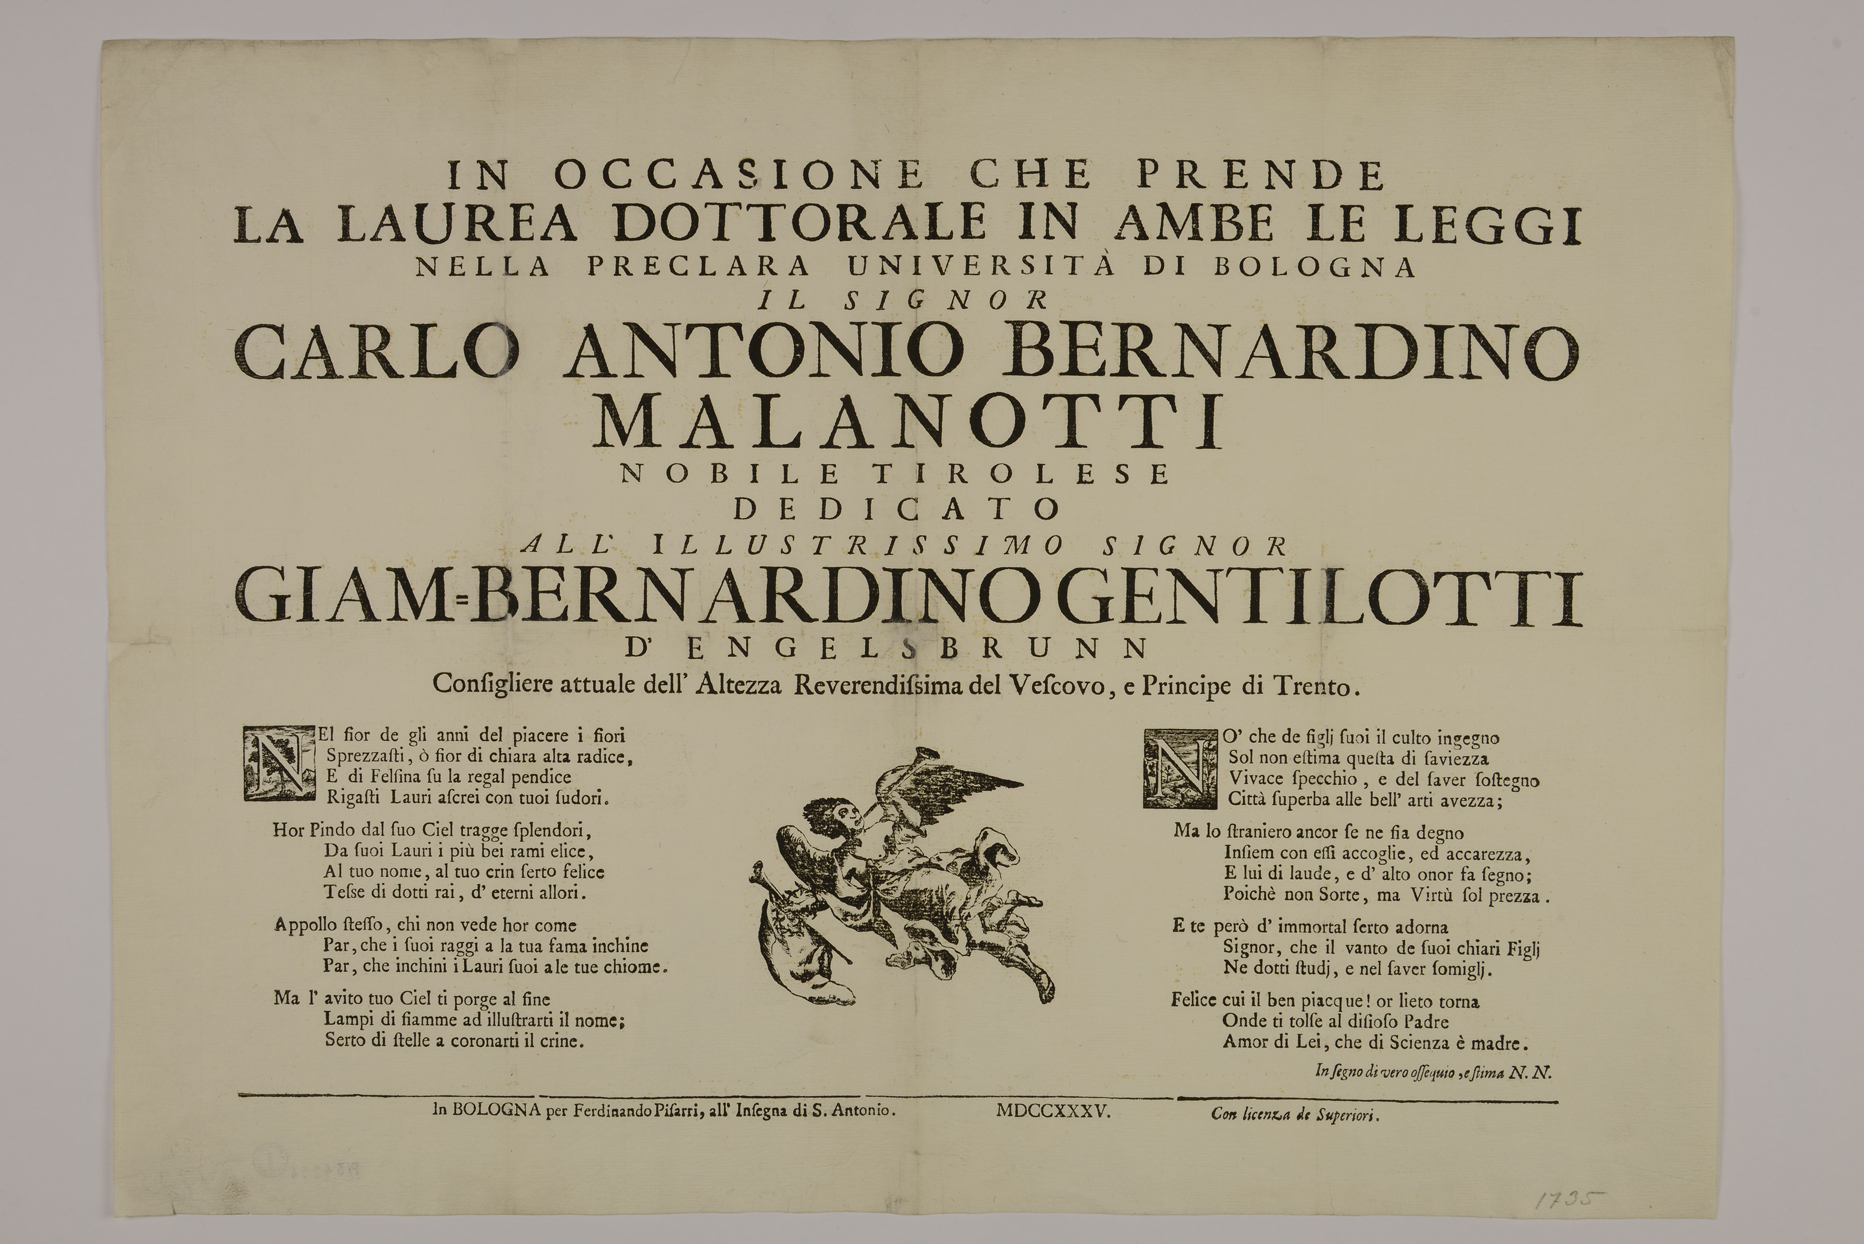 IN OCCASIONE CHE PRENDE
LA LAUREA DOTTORALE IN AMBE LE LEGGI
NELLA PRECLARA UNIVERSITÀ DI BOLOGNA
IL SIGNOR
CARLO ANTONIO BERNARDINO
MALANOTTI
NOBILE TIROLESE
DEDICATO
ALL' ILLUSTRISSIMO SIGNOR
GIAM=BERNARDINO GENTILOTTI
D' ENGELSBRUNN
Conſigliere attuale dell' Altezza Reverendiſsima del Veſcovo, e Principe di Trento.
NEl fior de gli anni del piacere i fiori
Sprezzaſti, ò fior di chiara alta radice,
E di Felſina ſu la regal pendice
Rigaſti Lauri aſcrei con tuoi ſudori.
Hor Pindo dal ſuo Ciel tragge ſplendori,
Da ſuoi Lauri i più bei rami elice,
Al tuo nome, al tuo crin ſerto felice
Teſse di dotti rai, d' eterni allori.
Appollo ſteſſo, chi non vede hor come
Par, che i ſuoi raggi a la tua fama inchine
Par, che inchini i Lauri ſuoi a le tue chiome.
Ma l' avito tuo Ciel ti porge al fine
Lampi di fiamme ad illuſtrarti il nome;
Serto di ſtelle a coronarti il crine.
NO' che de figlj ſuoi il culto ingegno
Sol non eſtima queſta di ſaviezza
Vivace ſpecchio, e del ſaver ſoſtegno
Città ſuperba alle bell' arti avezza;
Ma lo ſtraniero ancor ſe ne ſia degno
Inſiem con eſſi accoglie, ed accarezza,
E lui di laude, e d' alto onor fa ſegno;
Poichè non Sorte, ma Virtù ſol prezza.
E te però d' immortal ſerto adorna
Signor, che il vanto de ſuoi chiari Figlj
Ne dotti ſtudj, e nel ſaver ſomiglj.
Felice cui il ben piacque! or lieto torna
Onde ti tolſe al diſioſo Padre
Amor di Lei, che di Scienza è madre.
In ſegno di vero oſſequio, e ſtima N. N.
In BOLOGNA per Ferdinando Piſarri, all' Inſegna di S. Antonio. MDCCXXXV. Con licenza de Superiori.
1735